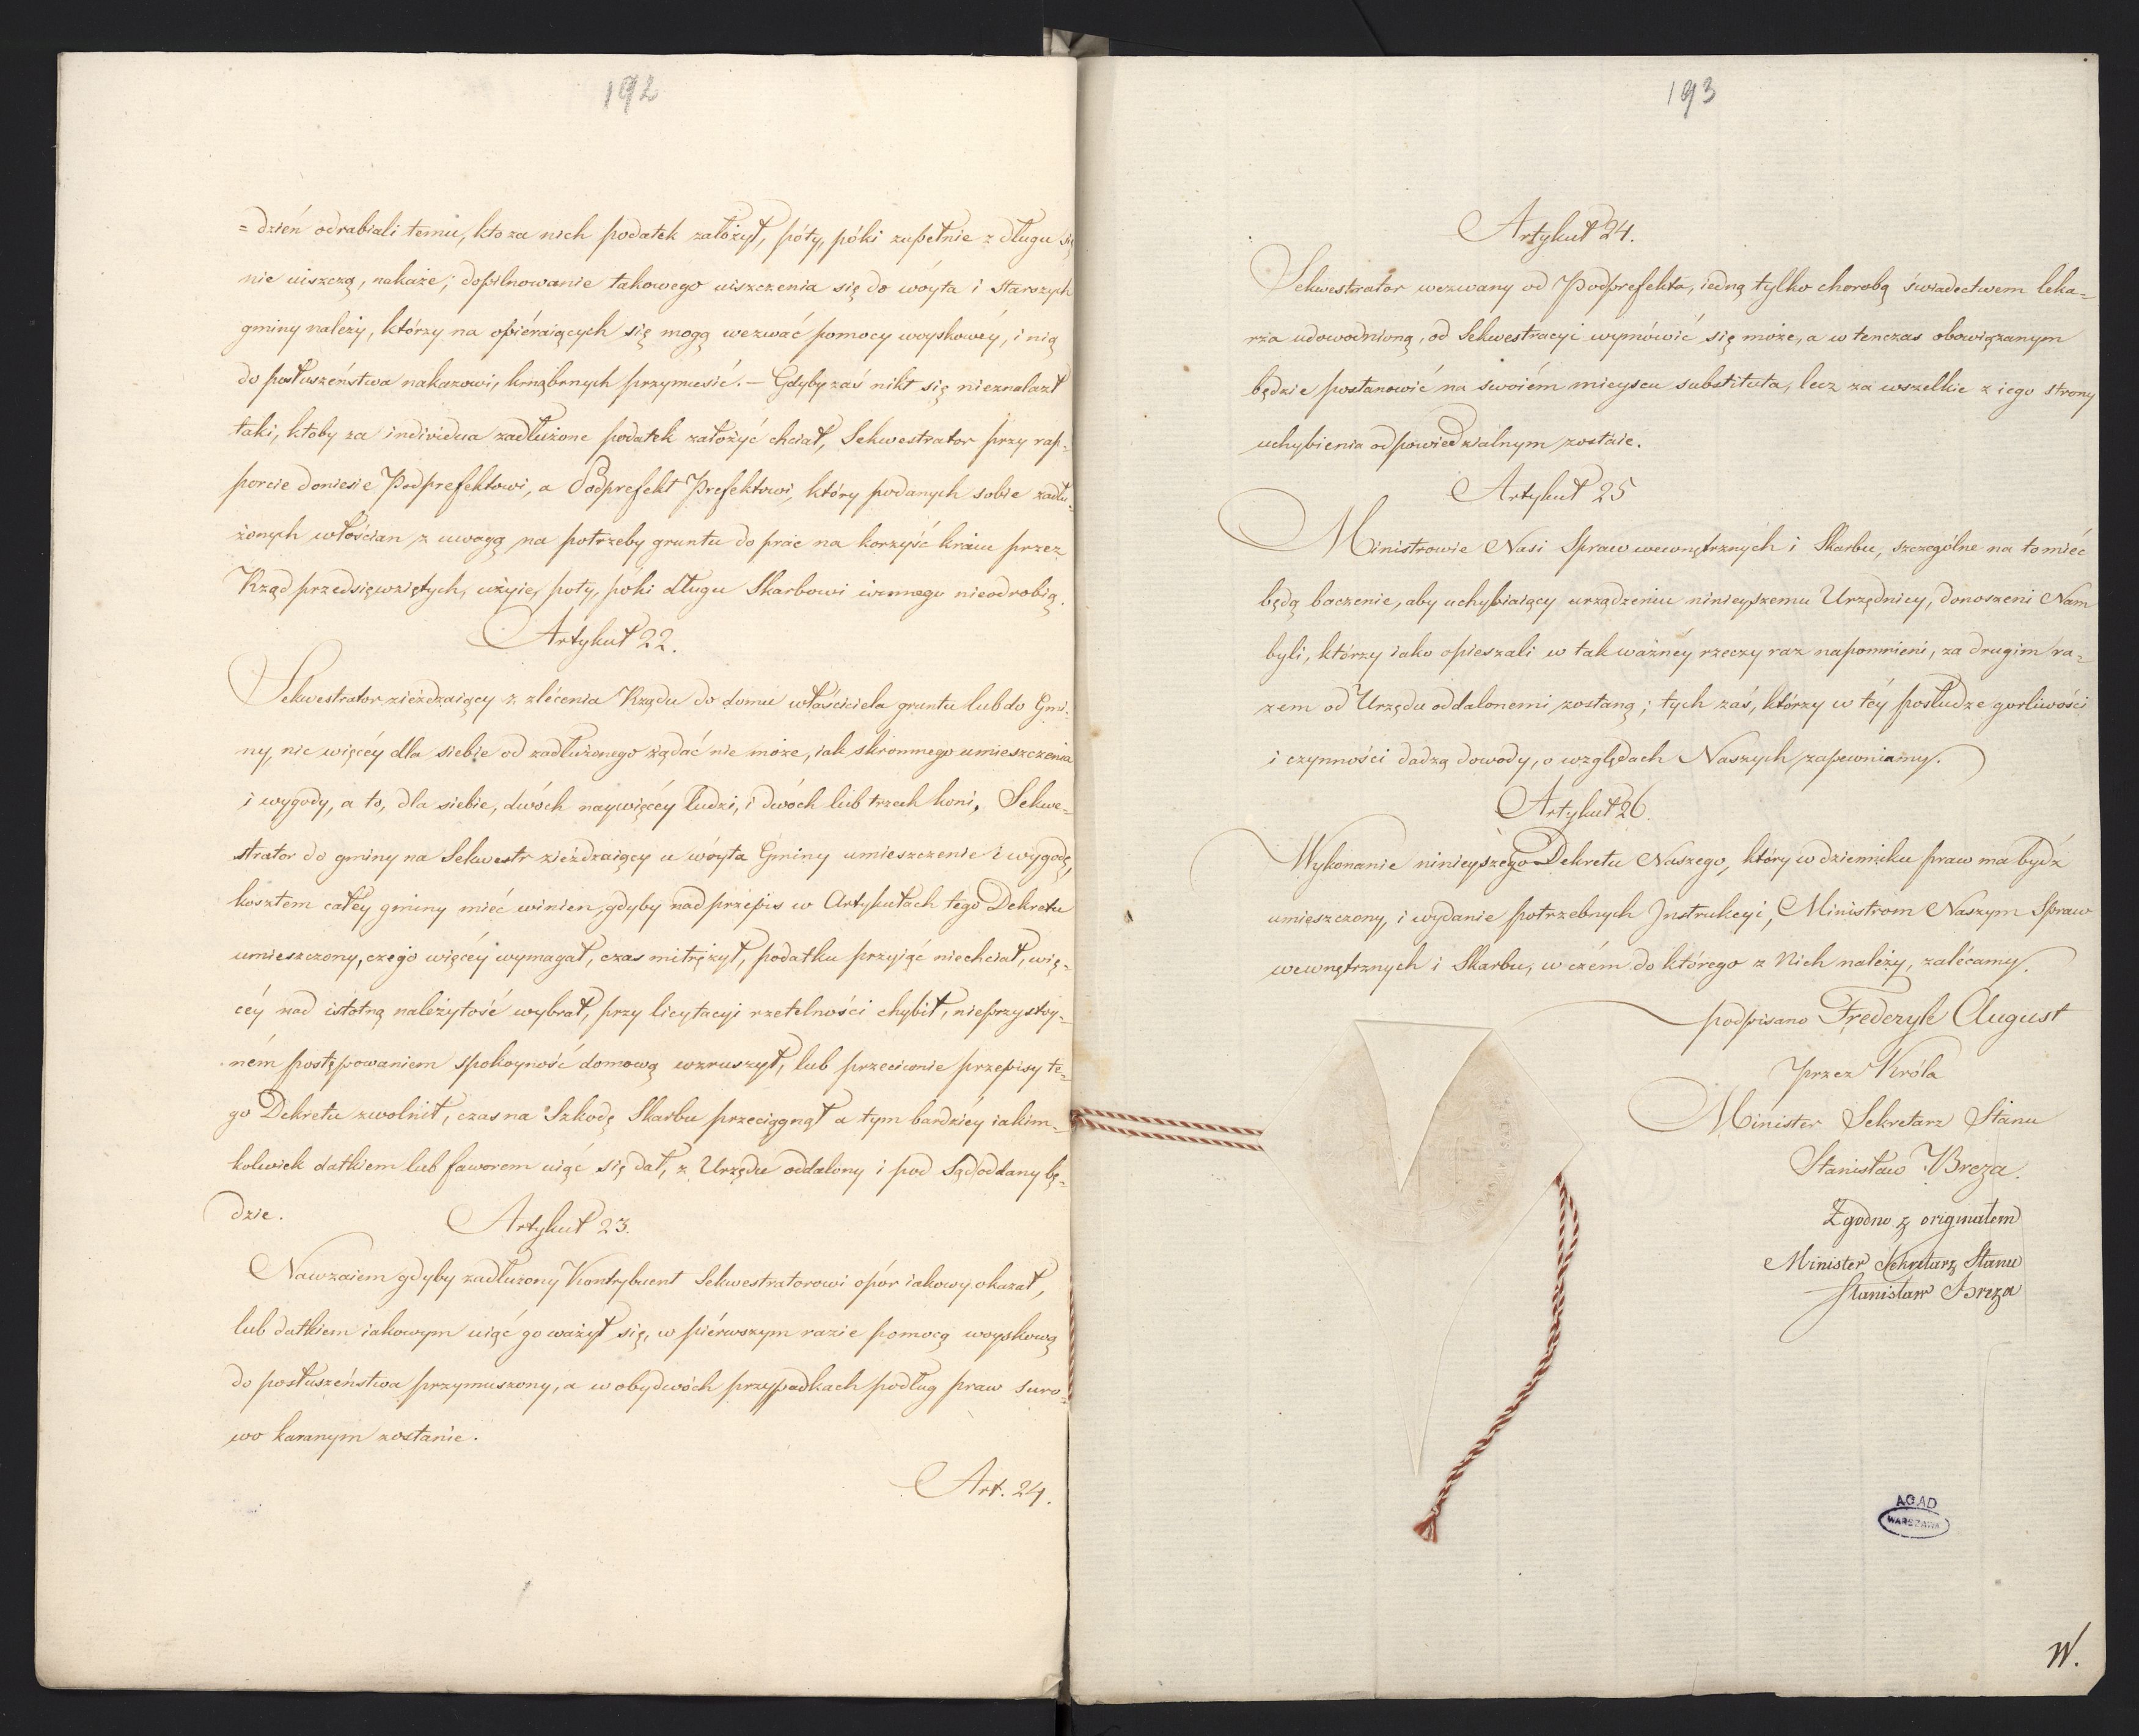 192
= dzień odrabiali temu, kto za nich podatek założył, póty, póki zupełnie z długu się
nie uiszczą, nakaże; dopilnowanie takowego uiszczenia się do wóyta i Starszych
gminy należy, którzy na opiéraiących się mogą wezwać pomocy woyskowéy, i nią
do posłuszeństwa nakazowi, krnąbrnych przymusić. – Gdyby zaś nikt się nieznalazł
taki, ktoby za individua zadłużone podatek założyć chciał, Sekwestrator przy rap-
porcie doniesie Podprefektowi, a Podprefekt Prefektowi, który podanych sobie zadłu-
żonych włościan z uwagą na potrzeby gruntu do prac na korzyść kraiu przez
Rząd przedsięwziętych, użyie, poty, póki długu Skarbowi winnego nieodrobią.
Artykuł 22.
Sekwestrator zieżdzaiący z zlécenia Rządu do domu właściciela gruntu lub do Gmi-
ny, nic więcéy dla siebie od zadłużonego żądać nie może, iak skromnego umieszczenia
i wygody, a to, dla siebie, dwóch naywięcéy ludzi, i dwóch lub trzech koni. Sekwe-
strator do gminy na Sekwestr zieżdzaiący u wóyta Gminy umieszczenie i wygodę,
kosztem całéy gminy mieć winien, gdyby nad przepis w Artykułach tego Dekretu
umieszczony, czego więcéy wymagał, czas mitrężył, podatku przyiąć niechciał, wię-
céy nad istotną należytość wybrał, przy licytacyi rzetelności chybił, nieprzystoy-
ném postępowaniem spokoyność domową wzruszył, lub przeciwnie przepisy te-
go Dekretu zwolnił, czas na Szkodę Skarbu przeciągnął a tym bardziéy iakim-
kolwiek datkiem lub faworem uiąć się dał, z Urzędu oddalony i pod Sąd oddany bę-
dzie.
Artykuł 23.
Nawzaiem gdyby zadłużony Kontrybuent Sekwestratorowi opór iakowy okazał,
lub datkiem iakowym uiąć go ważył się, w piérwszym razie pomocą woyskową
do posłuszeństwa przymuszony, a w obydwóch przypadkach podług praw suro-
wo karanym zostanie.
Art. 24.
193
Artykuł 24.
Sekwestrator wezwany od Podprefekta, iedną tylko chorobą świadectwem leka-
rza udowodnioną, od Sekwestracyi wymówić się może, a w tenczas obowiązanym
będzie postanowić na swoiém mieyscu substituta, lecz za wszelkie z iego strony
uchybienia odpowiedzialnym zostaie.
Artykuł 25
Ministrowie Nasi Spraw wewnętrznych i Skarbu, szczególne na to mieć
będą baczenie, aby uchybiaiący urządzeniu ninieyszemu Urzędnicy, donoszeni Nam
byli, którzy iako opieszali w tak ważnéy rzeczy raz napomnieni, za drugim ra-
zem od Urzędu oddalonemi zostaną; tych zaś, którzy w téy posłudze gorliwości
i czynności dadzą dowody, o względach Naszych zapewniamy.
Artykuł 26.
Wykonanie ninieyszego Dekretu Naszego, który w dzienniku praw ma bydź
umieszczony, i wydanie potrzebnych Instrukcyi, Ministrom Naszym Spraw
wewnętrznych i Skarbu, w czém do którego z Nich należy, zalécamy.
podpisano Frederyk August
przez Króla
Minister Sekretarz Stanu
Stanisław Breza.
Zgodno z originałem
Minister Sekretarz Stanu
Stanisław Breza
AGAD
WARSZAWA
W.